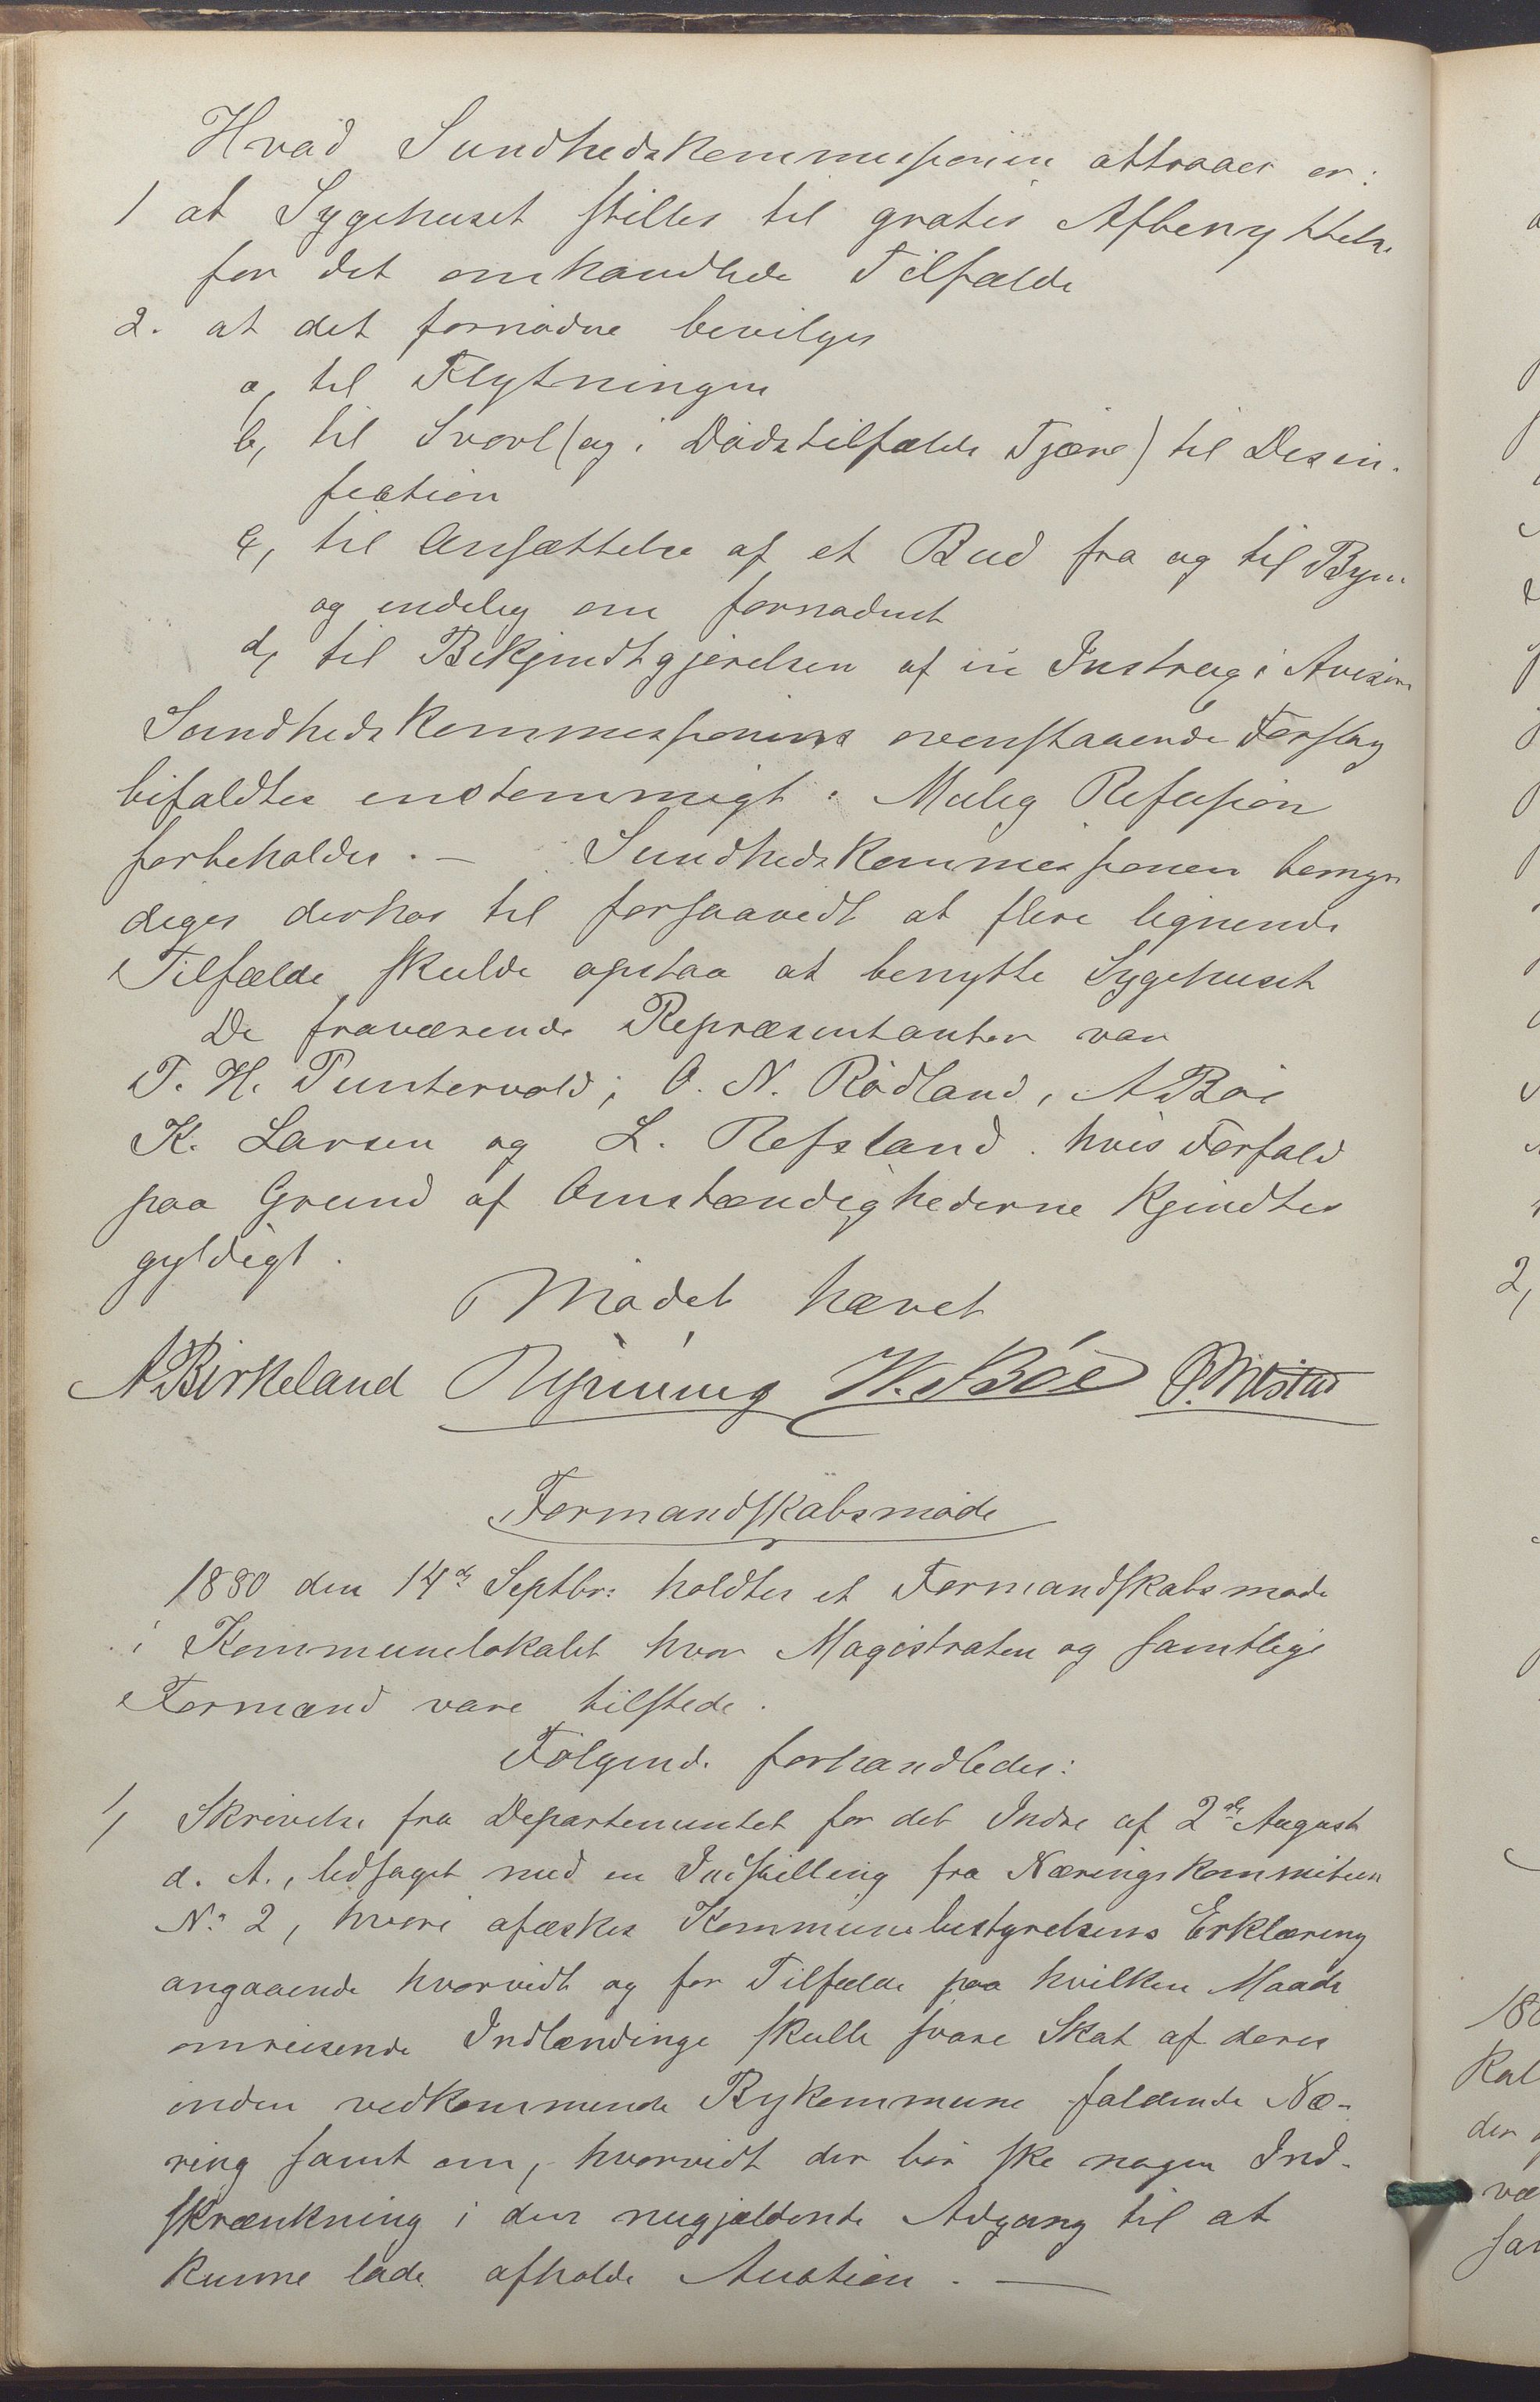 Hvad Sundhedskommissionen attraaer er:
1 at Sygehuset stilles til gratis Afbenyttelse
for det omhandlede Tilfælde
2. at det fornødne bevilges
a, til Flytningen
b, til Svovl (og i Dødstilfælde Tjære) til Desin-
fection
c, til Ansættelse af et Bud fra og til Byen
og endelig om fornødent
d, til Bekjendtgjørelsen af en Instrux i Avisen
Sundhedskommissionens ovenstaaende Forslag
bifaldtes enstemmigt. Mulig Refusion
forbeholdes. — Sundhedskommissionen bemyn
diges derhos til forsaavidt at flere lignende
Tilfælde skulde opstaa at benytte Sygehuset
De fraværende Repræsentanter var
T. H. Puntervold, O. N. Rødland, A Bøe
K. Larsen og L. Refsland. hvis Forfald
paa Grund af Omstændighederne kjendtes
gyldigt.
Mødet hævet
A Birkeland W. Bøe
Formandskabsmøde
1880 den 14de Septbr: holdtes et Formandskabsmøde
i Kommunelokalet hvor Magistraten og samtlige
Formænd vare tilstede.
Følgende forhandledes:
1, Skrivelse fra Departementet for det Indre af 2de August
d. A., ledsaget med en Indstilling fra Næringskommiteen
No 2, hvori afæskes Kommunebestyrelsens Erklæring
angaaende hvorvidt og for Tilfælde paa hvilken Maade
omreisende Indlændinge skulle svare Skat af deres
inden vedkommende Bykommune faldende Næ-
ring samt om, hvorvidt der bør ske nogen Ind-
skrænkning i den nugjældende Adgang til at
kunne lade afholde Auction. —